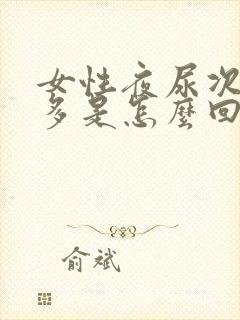 女性夜尿次
多是怎麼回
俞斌